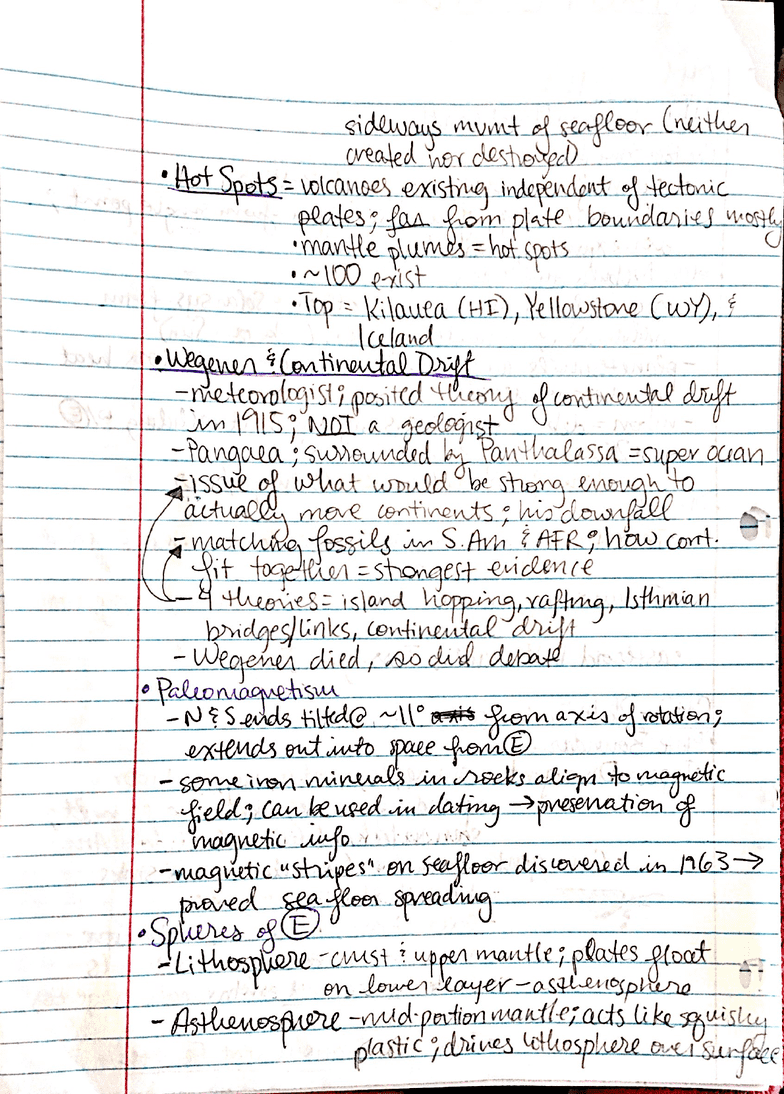 sideways mvmt of seafloor (neither
created nor destroyed)
• Hot Spots = volcanoes existing independent of tectonic
plates; far from plate boundaries mostly
• mantle plumes = hot spots
• ~100 exist
• Top = Kilauea (HI), Yellowstone (WY), &
Iceland
• Wegener & Continental Drift
- meteorologist; posited theory of continental drift
in 1915; NOT a geologist
- Pangaea; surrounded by Panthalassa = super ocean
- issue of what would be strong enough to
actually move continents; his downfall
- matching fossils in S. Am & AFR; how cont.
fit together = strongest evidence
- 4 theories = island hopping, rafting, Isthmian
bridges/links, continental drift
- Wegener died, so did debate
• Paleomagnetism
- N & S ends tilted @ ~11° axis from axis of rotation;
extends out into space from E
- some iron minerals in rocks align to magnetic
field; can be used in dating → preservation of
magnetic info.
- magnetic "stripes" on seafloor discovered in 1963 →
proved sea floor spreading
• Spheres of E
- Lithosphere - crust & upper mantle; plates float
on lower layer - asthenosphere
- Asthenosphere - mid-portion mantle; acts like squishy
plastic; drives lithosphere over surface